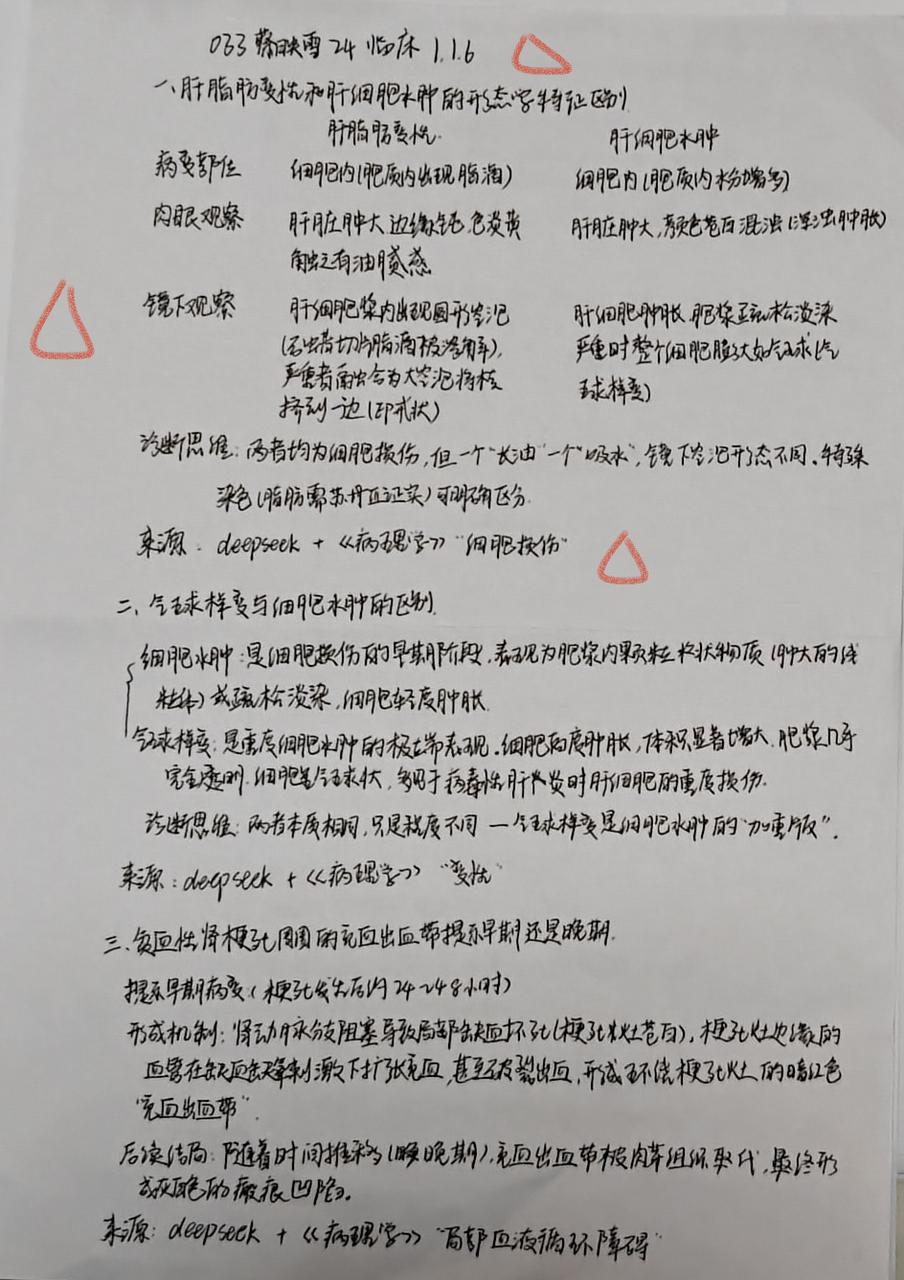 033 蔡映雪 24 临床 1.1.6
一、肝脂肪变性和肝细胞水肿的形态学特征区别
肝脂肪变性 肝细胞水肿
病变部位 细胞内(胞质内出现脂滴) 细胞内(胞质内水分增多)
肉眼观察 肝脏肿大,边缘钝,色淡黄 肝脏肿大,颜色苍白混浊(浑浊肿胀)
触之有油腻感
镜下观察 肝细胞浆内出现圆形空泡 肝细胞肿胀,胞浆疏松淡染
(石蜡切片脂滴被溶解), 严重时整个细胞膨大如气球(气
严重者融合为大空泡将核 球样变)
挤到一边(印戒状)
诊断思维:两者均为细胞损伤,但一个“长油”一个“吸水”,镜下空泡形态不同,特殊
染色(脂肪需苏丹Ⅲ证实)可明确区分.
来源:deepseek + 《病理学》“细胞损伤”
二、气球样变与细胞水肿的区别
细胞水肿:是细胞损伤的早期阶段,表现为胞浆内颗粒状物质(肿大的线
粒体)或疏松淡染,细胞轻度肿胀.
气球样变:是重度细胞水肿的极端表现.细胞高度肿胀,体积显著增大.胞浆几乎
完全透明.细胞呈气球状,多见于病毒性肝炎时肝细胞的重度损伤.
诊断思维:两者本质相同,只是程度不同一气球样变是细胞水肿的“加重版”.
来源:deepseek + 《病理学》“变性”
三、贫血性肾梗死周围的充血出血带提示早期还是晚期.
提示早期病变(梗死发生后约24~48小时)
形成机制:肾动脉分支阻塞导致局部缺血坏死(梗死灶苍白),梗死灶边缘的
血管在缺血缺氧刺激下扩张充血,甚至破裂出血,形成环绕梗死灶的暗红色
“充血出血带”.
后续结局:随着时间推移(晚期),充血出血带被肉芽组织取代,最终形
成灰白色的瘢痕凹陷.
来源:deepseek + 《病理学》“局部血液循环障碍”